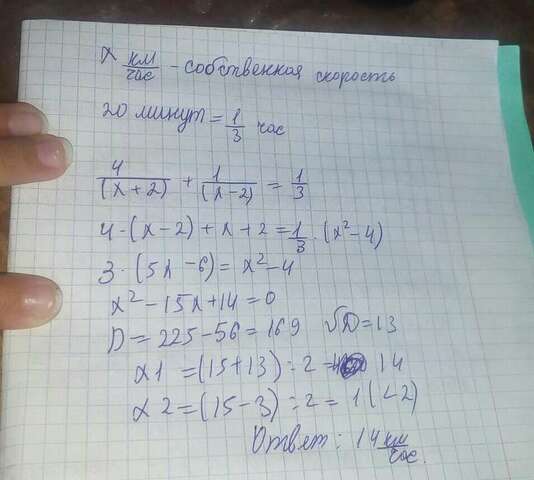 x км/час - собственная скорость
20 минут = 1/3 час
4/(x+2) + 1/(x-2) = 1/3
4·(x-2)+x+2=1/3·(x²-4)
3·(5x-6)=x²-4
x²-15x+14=0
D=225-56=169 √D=13
x1 =(15+13):2= 14
x2=(15-3):2=1(<2)
Ответ: 14 км/час.